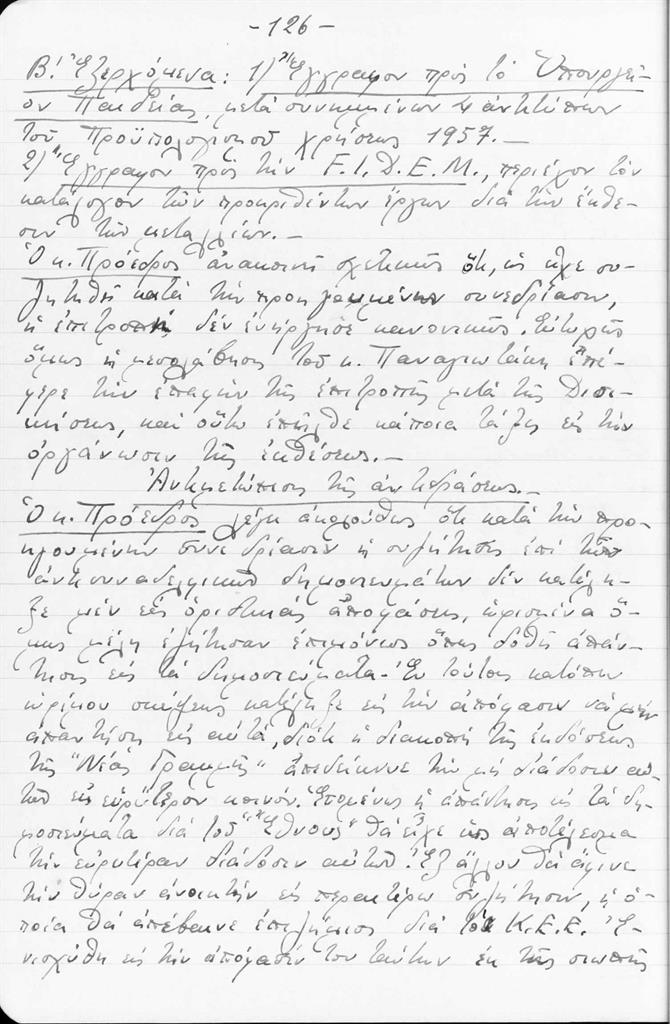 -126-
Β! Ἐξερχόμενα: 1) Ἔγγραφον πρὸς τὸ Ὑπουργεῖ-
ον Παιδείας, μετὰ συνημμένων 4 ἀντιτύπων
τοῦ Προϋπολογισμοῦ χρήσεως 1957.-
2) Ἔγγραφον πρὸς τὴν F.I.D.E.M., περιέχον τὸν
κατάλογον τῶν προκριθέντων ἔργων διὰ τὴν ἔκθε-
σιν τῶν μεταλλίων.-
Ὁ κ. Πρόεδρος ἀνακοινοῖ σχετικῶς ὅτι, ὡς εἶχε συ-
ζητηθῆ κατὰ τὴν προηγουμένην συνεδρίασιν,
ἡ ἐπιτροπὴ δὲν ἐνήργησε κανονικῶς. Εὐτυχῶς
ὅμως ἡ μεσολάβησις τοῦ κ. Παναγιωτάκη ἐπέ-
φερε τὴν ἐπαφὴν τῆς ἐπιτροπῆς μετὰ τῆς Διοι-
κήσεως, καὶ οὕτω ἐπῆλθε κάποια τάξις εἰς τὴν
ὀργάνωσιν τῆς ἐκθέσεως.-
Ἀντιμετώπισις τῆς ἀντιδράσεως.-
Ὁ κ. Πρόεδρος λέγει ἀκολούθως ὅτι κατὰ τὴν προ-
ηγουμένην συνεδρίασιν ἡ συζήτησις ἐπὶ τῶν
ἀντισυναδελφικῶν δημοσιευμάτων δὲν κατέλη-
ξε μὲν εἰς ὁριστικὰς ἀποφάσεις, ὡρισμένα ὅ-
μως μέλη ἐζήτησαν ἐπιμόνως ὅπως δοθῆ ἀπάν-
τησις εἰς τὰ δημοσιεύματα. Ἐν τούτοις κατόπιν
ὡρίμου σκέψεως κατέληξε εἰς τὴν ἀπόφασιν νὰ μὴν
ἀπαντήση εἰς αὐτά, διότι ἡ διακοπὴ τῆς ἐκδόσεως
τῆς "Νέας Γραμμῆς" ἀπεδείκνυε τὴν μὴ διάδοσιν αὐ-
τοῦ εἰς εὐρύτερον κοινόν. Ἑπομένως ἡ ἀπάντησις εἰς τὰ δη-
μοσιεύματα διὰ τοῦ "Ἔθνους" θὰ εἶχε ὡς ἀποτέλεσμα
τὴν εὐρυτέραν διάδοσιν αὐτοῦ. Ἐξ ἄλλου θὰ ἄφινε
τὴν θύραν ἀνοικτὴν εἰς περαιτέρω συζήτησιν, ἡ ὁ-
ποία θὰ ἀπέβαινε ἐπιζήμιος διὰ τὸ Κ.Ε.Ε. Ἐ-
νισχύθη εἰς τὴν ἀπόφασίν του ταύτην ἐκ τῆς σιωπῆς